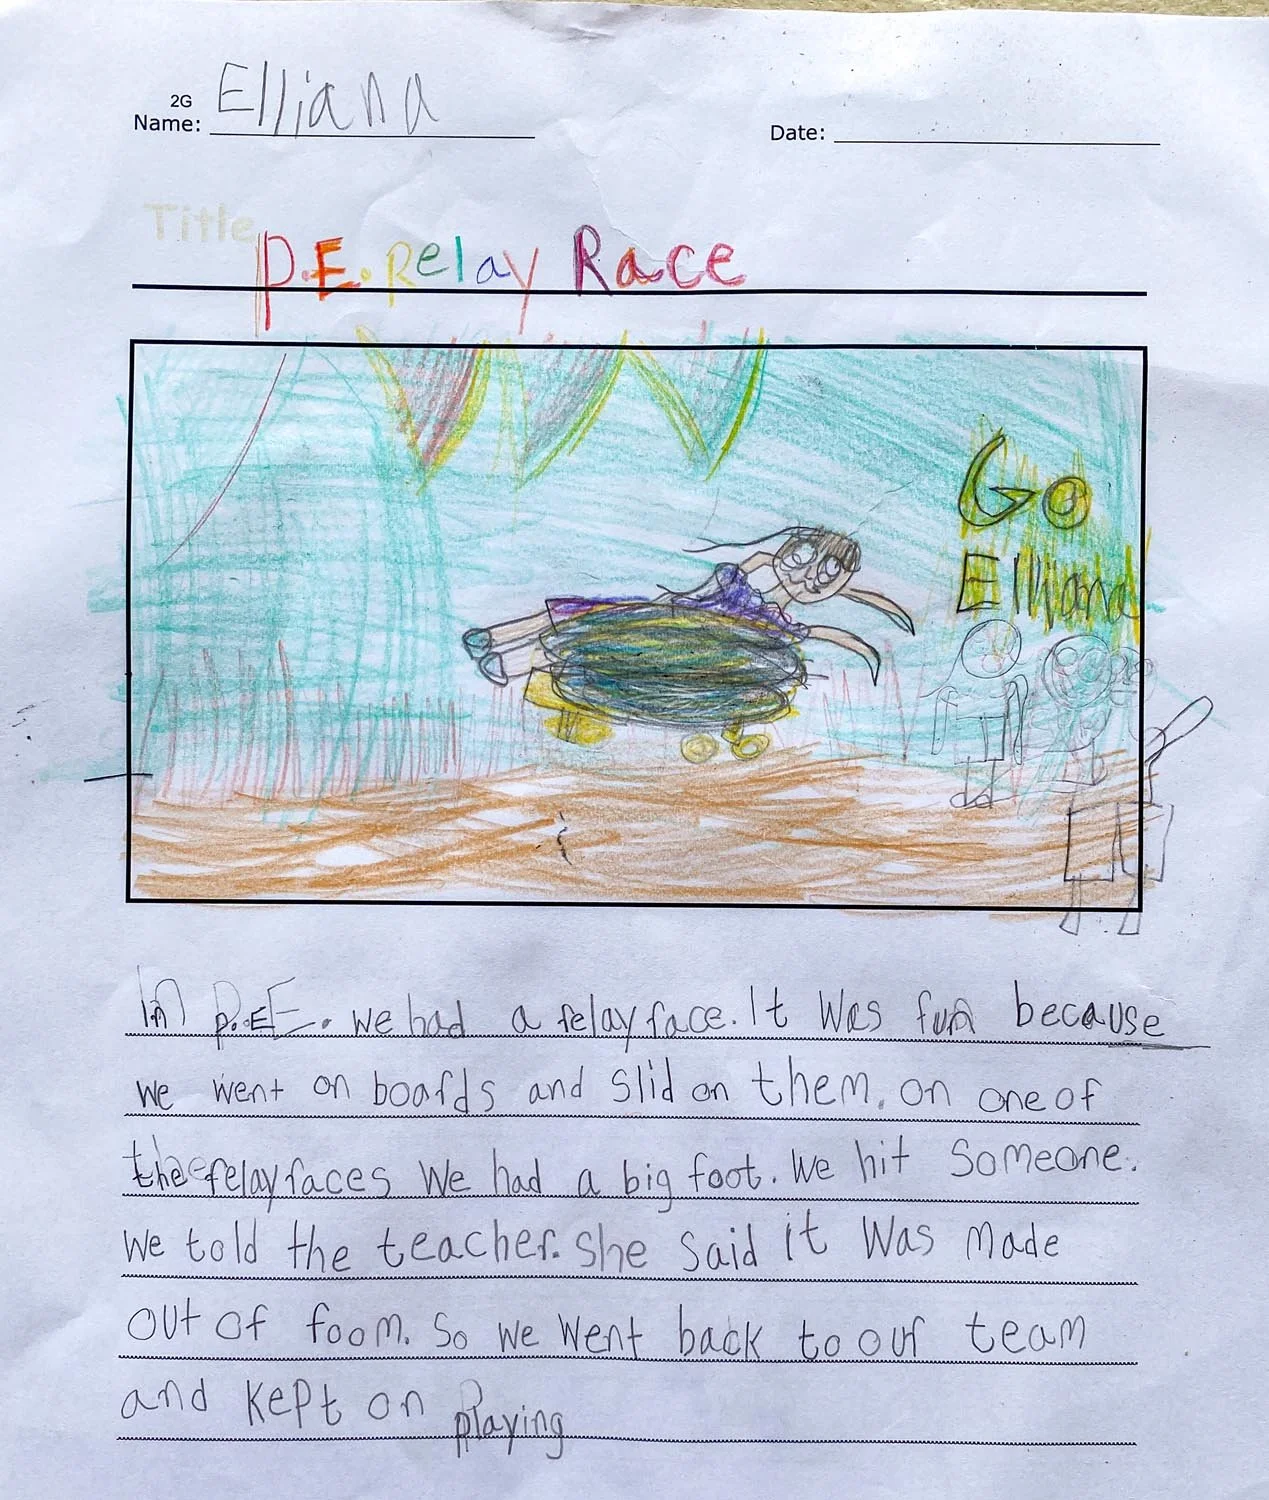 2G
Name: Elliana
Date:
Title
P.E. Relay Race
Go
Elliana
In P.E. we had a relay race. It was fun because
we went on boards and slid on them. on one of
the relay races we had a big foot. We hit someone.
We told the teacher. She said it was made
out of foom. So we went back to our team
and kept on playing